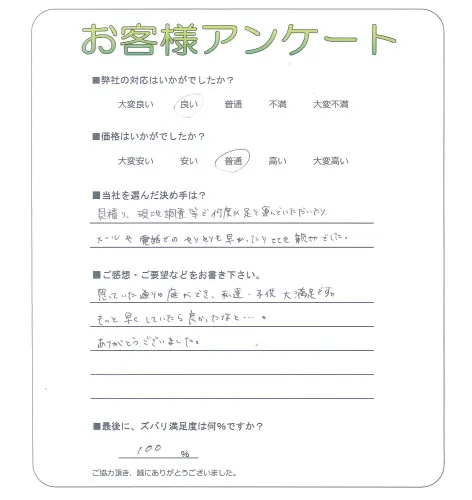 お客様アンケート
■弊社の対応はいかがでしたか？
大変良い 良い 普通 不満 大変不満
■価格はいかがでしたか？
大変安い 安い 普通 高い 大変高い
■当社を選んだ決め手は？
見積り、現地調査等で何度か足を運んでいただいたり
メールや電話でのやりとりも早かったりとても親切でした。
■ご感想・ご要望などをお書き下さい。
思っていた通りの庭ができ、私達・子供 大満足です
もっと早くしていたら良かったなと…。
ありがとうございました。
■最後に、ズバリ満足度は何％ですか？
100 %
ご協力頂き、誠にありがとうございました。